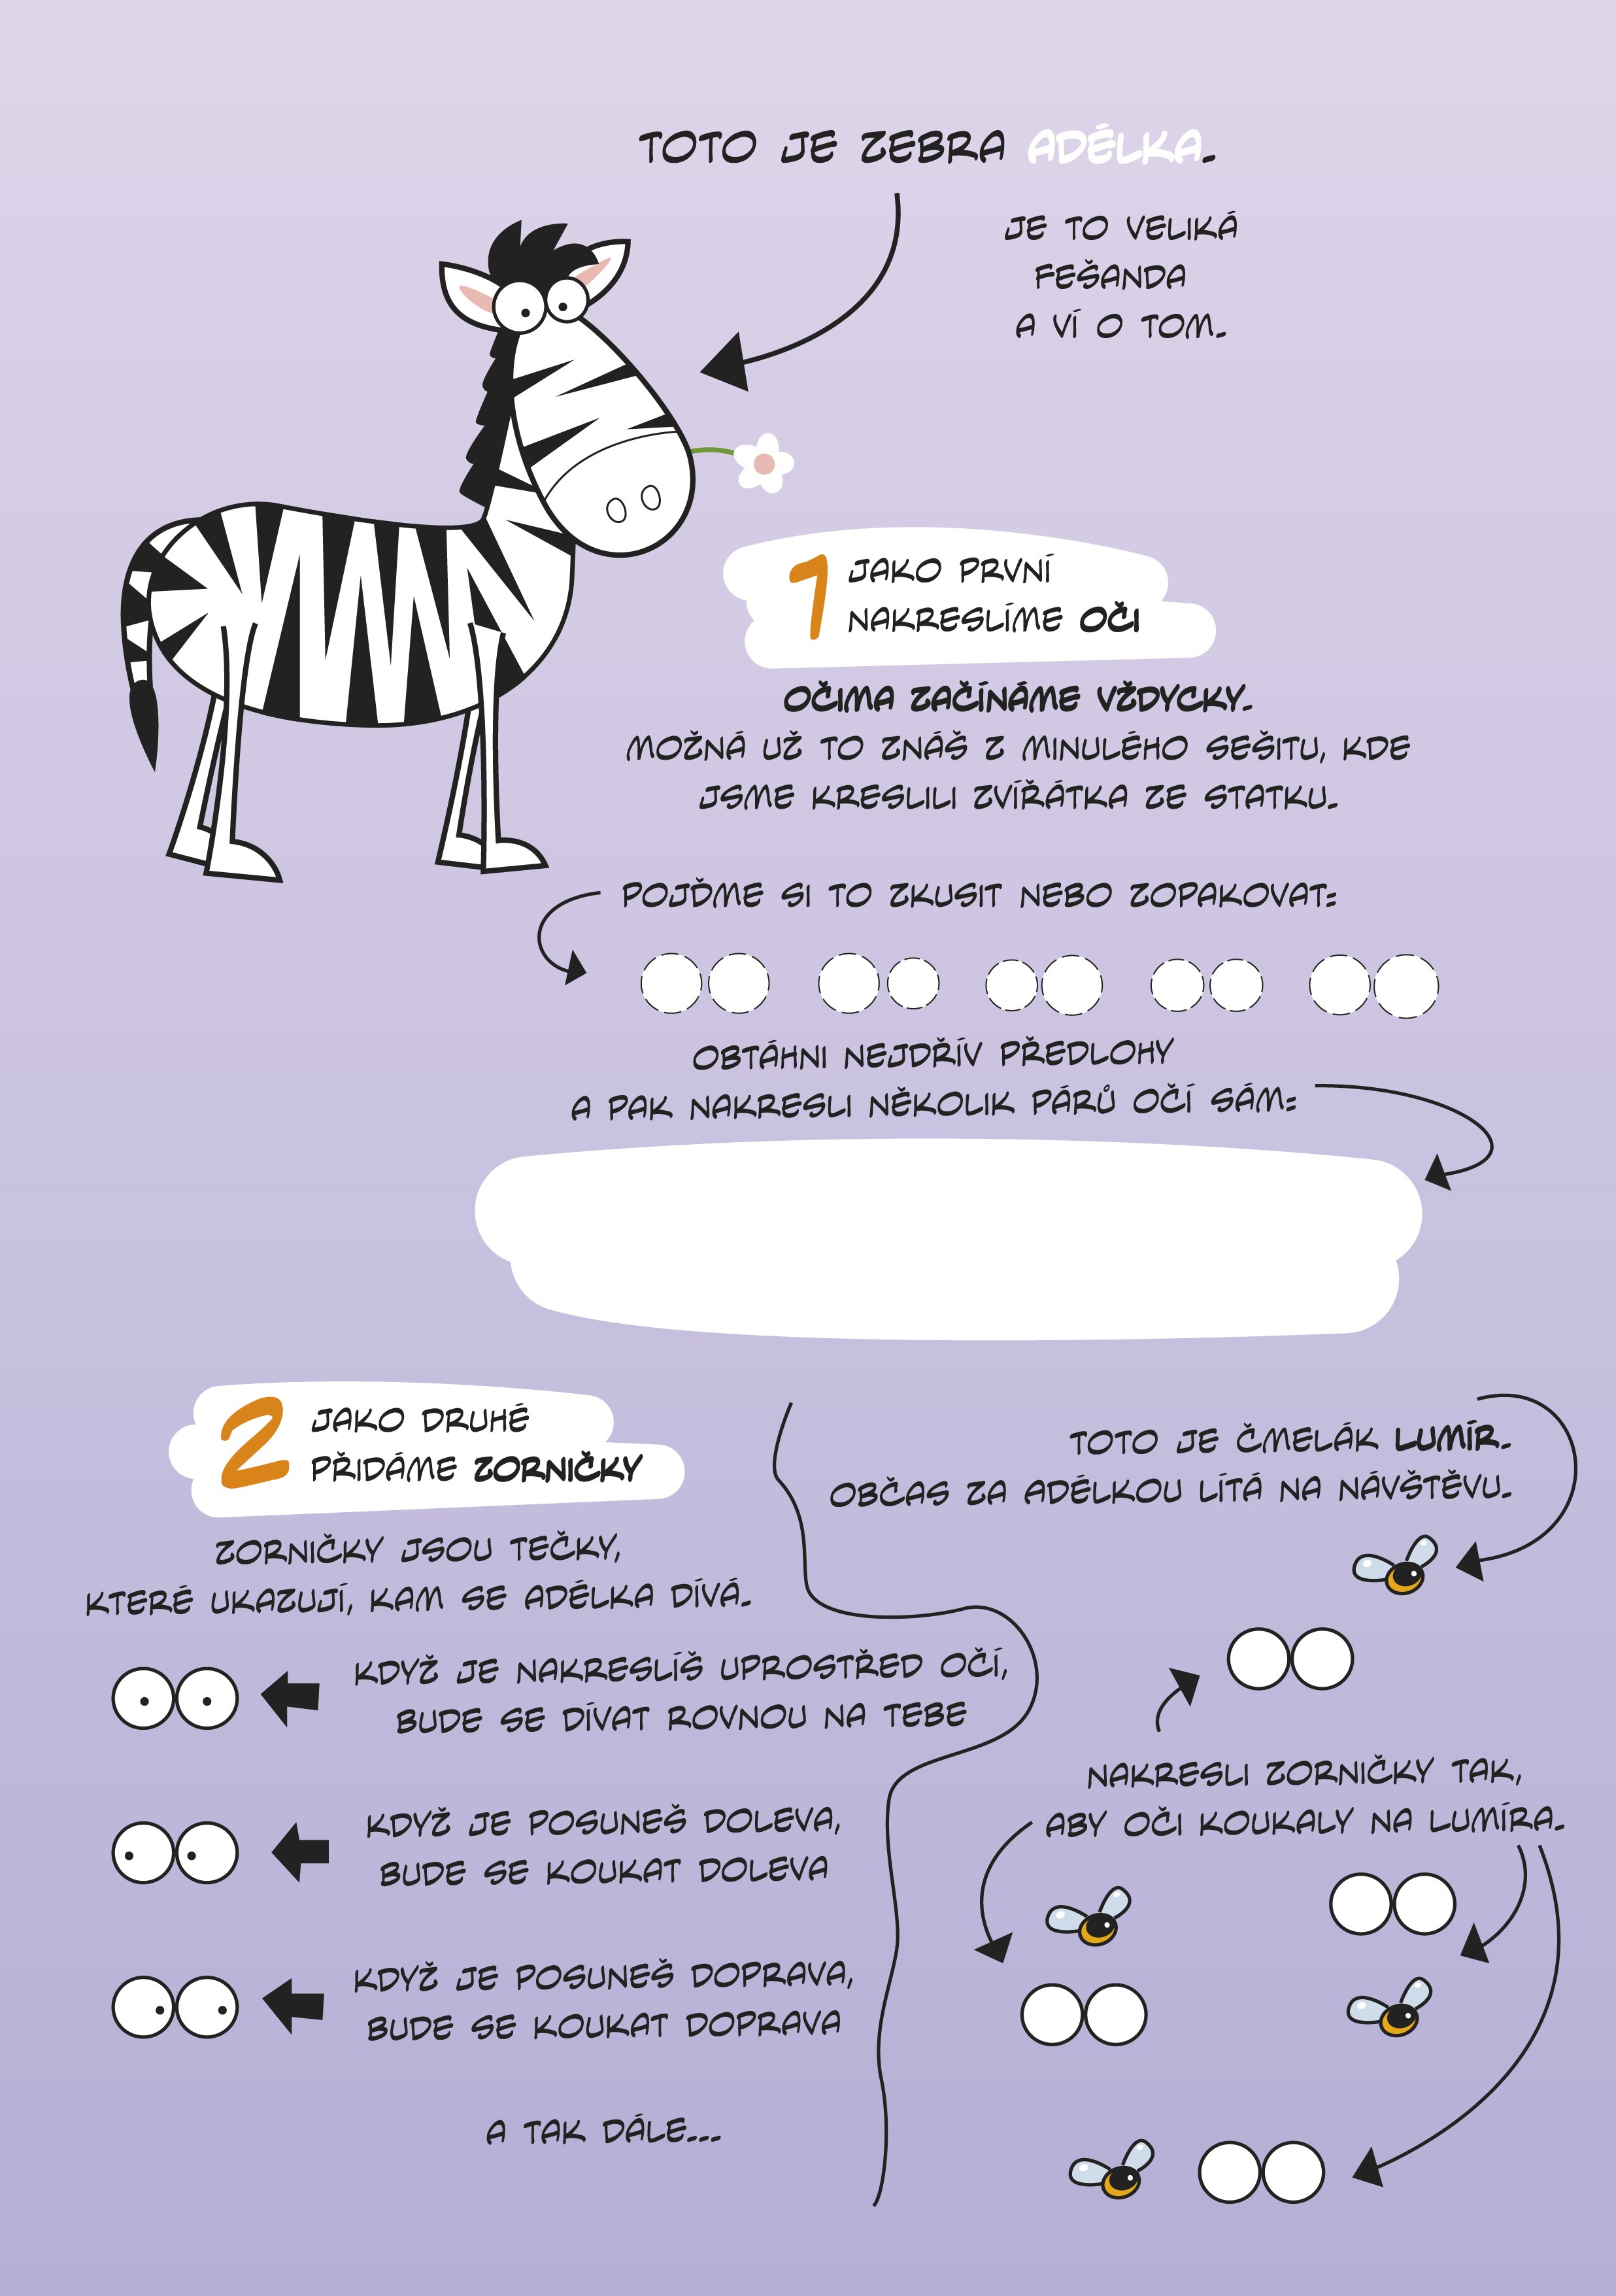 TOTO JE ZEBRA ADÉLKA.
JE TO VELIKÁ
FEŠANDA
A VÍ O TOM.
1 JAKO PRVNÍ
NAKRESLÍME OČI
OČIMA ZAČÍNÁME VŽDYCKY.
MOŽNÁ UŽ TO ZNÁŠ Z MINULÉHO SEŠITU, KDE
JSME KRESLILI ZVÍŘÁTKA ZE STATKU.
POJĎME SI TO ZKUSIT NEBO ZOPAKOVAT:
OBTÁHNI NEJDŘÍV PŘEDLOHY
A PAK NAKRESLI NĚKOLIK PÁRŮ OČÍ SÁM:
2 JAKO DRUHÉ
PŘIDÁME ZORNIČKY
ZORNIČKY JSOU TEČKY,
KTERÉ UKAZUJÍ, KAM SE ADÉLKA DÍVÁ.
KDYŽ JE NAKRESLÍŠ UPROSTŘED OČÍ,
BUDE SE DÍVAT ROVNOU NA TEBE
KDYŽ JE POSUNEŠ DOLEVA,
BUDE SE KOUKAT DOLEVA
KDYŽ JE POSUNEŠ DOPRAVA,
BUDE SE KOUKAT DOPRAVA
A TAK DÁLE...
TOTO JE ČMELÁK LUMÍR.
OBČAS ZA ADÉLKOU LÍTÁ NA NÁVŠTĚVU.
NAKRESLI ZORNIČKY TAK,
ABY OČI KOUKALY NA LUMÍRA.